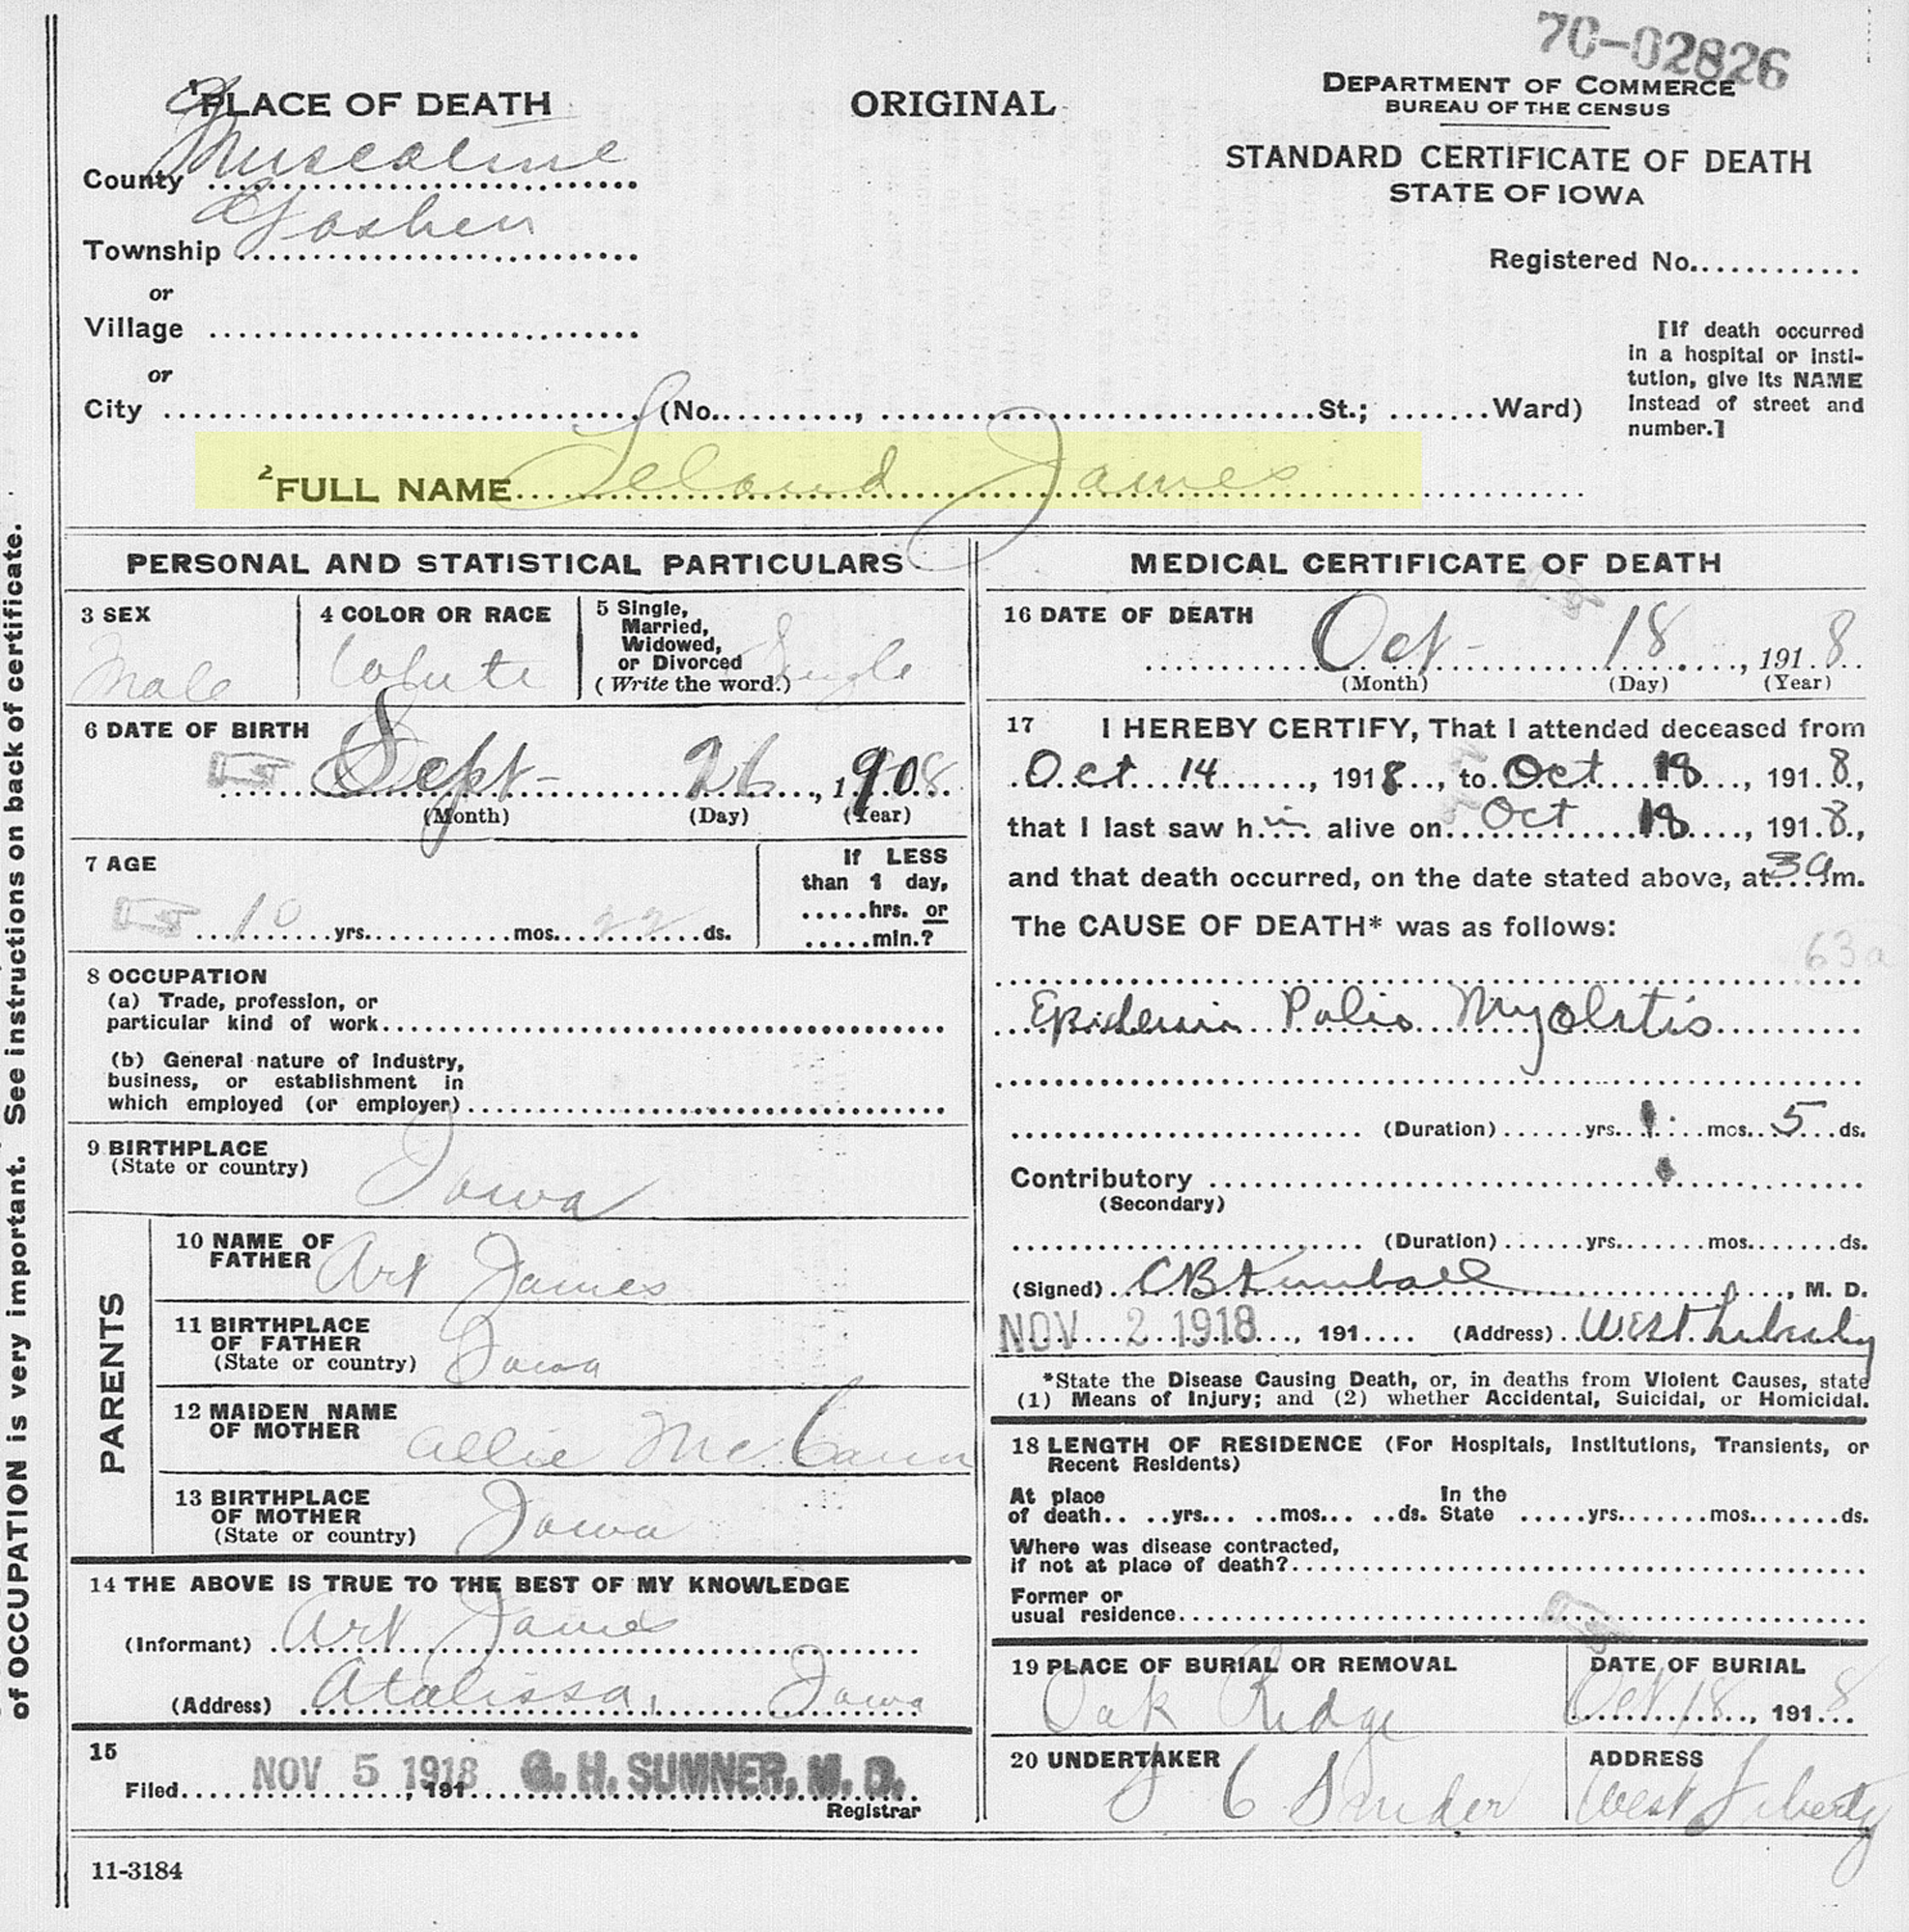 7C-02826
1 PLACE OF DEATH
County Muscatine
Township Goshen
or
Village
or
City (No. , St.; Ward)
ORIGINAL
DEPARTMENT OF COMMERCE
BUREAU OF THE CENSUS
STANDARD CERTIFICATE OF DEATH
STATE OF IOWA
Registered No.
[If death occurred
in a hospital or insti-
tution, give its NAME
instead of street and
number.]
2 FULL NAME Leland James
of OCCUPATION is very important. See instructions on back of certificate.
PERSONAL AND STATISTICAL PARTICULARS
3 SEX
Male
4 COLOR OR RACE
White
5 Single,
Married,
Widowed,
or Divorced
(Write the word.) Single
6 DATE OF BIRTH
Sept - 26, 1908
(Month) (Day) (Year)
7 AGE
10 yrs. mos. 22 ds.
If LESS
than 1 day,
hrs. or
min.?
8 OCCUPATION
(a) Trade, profession, or
particular kind of work
(b) General nature of industry,
business, or establishment in
which employed (or employer)
9 BIRTHPLACE
(State or country) Iowa
PARENTS
10 NAME OF
FATHER Art James
11 BIRTHPLACE
OF FATHER
(State or country) Iowa
12 MAIDEN NAME
OF MOTHER Allie McCann
13 BIRTHPLACE
OF MOTHER
(State or country) Iowa
14 THE ABOVE IS TRUE TO THE BEST OF MY KNOWLEDGE
(Informant) Art James
(Address) Atalissa, Iowa
15
Filed NOV 5 1918, 191 G. H. SUMNER, M. D.
Registrar
11-3184
MEDICAL CERTIFICATE OF DEATH
16 DATE OF DEATH
Oct - 18, 1918
(Month) (Day) (Year)
17 I HEREBY CERTIFY, That I attended deceased from
Oct 14, 1918, to Oct 18, 1918,
that I last saw him alive on Oct 18, 1918,
and that death occurred, on the date stated above, at 3 a m.
The CAUSE OF DEATH* was as follows:
63a
Polio Myelitis
(Duration) yrs. mos. 5 ds.
Contributory
(Secondary)
(Duration) yrs. mos. ds.
(Signed) C B Kimball, M. D.
NOV 2 1918, 191 (Address) West Liberty
*State the Disease Causing Death, or, in deaths from Violent Causes, state
(1) Means of Injury; and (2) whether Accidental, Suicidal, or Homicidal.
18 LENGTH OF RESIDENCE (For Hospitals, Institutions, Transients, or
Recent Residents)
At place
of death yrs. mos. ds.
In the
State yrs. mos. ds.
Where was disease contracted,
if not at place of death?
Former or
usual residence
19 PLACE OF BURIAL OR REMOVAL
Oak Ridge
DATE OF BURIAL
Oct 18, 1918
20 UNDERTAKER
C Snider
ADDRESS
West Liberty